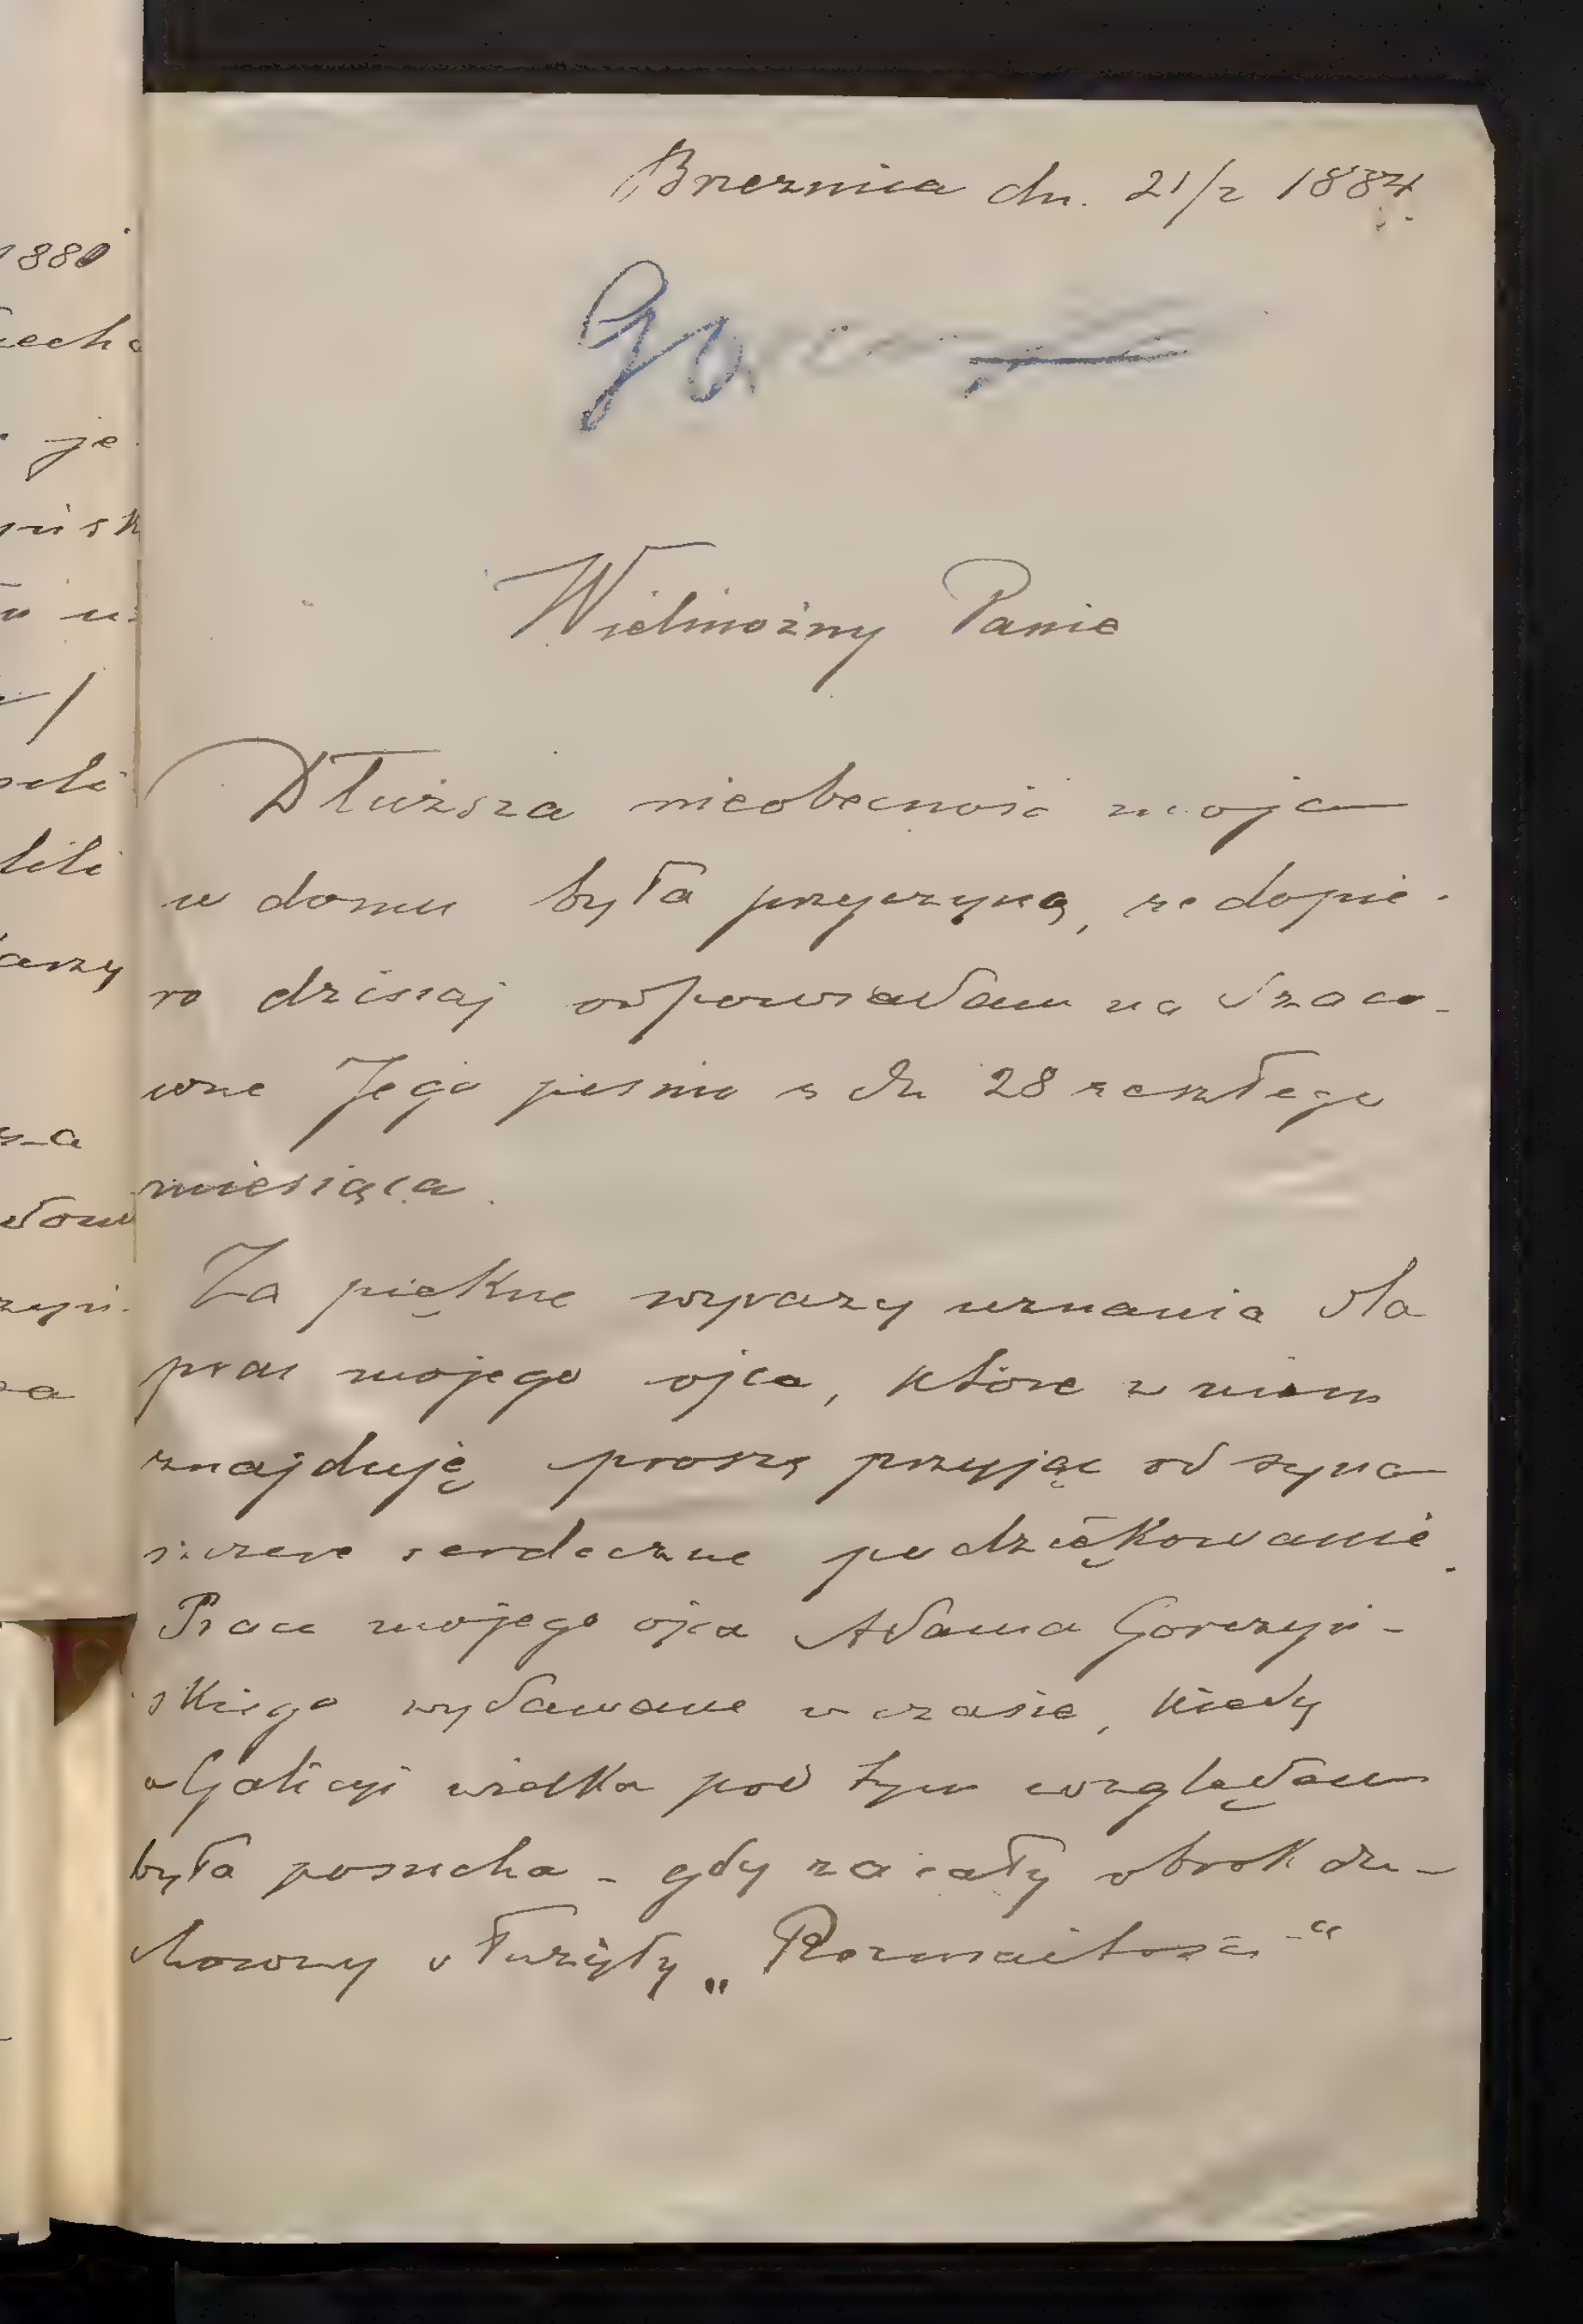 Brzeznica dn. 21/2 1884
Wielmożny Panie
Dłuższa nieobecność moja
w domu była przyczyną, że dopie-
ro dzisiaj odpowiadam na Szaco-
wne Jego pismo z dn 28 zeszłego
miesiąca.
Za piękne wyrazy uznania dla
prac mojego ojca, które w niem
znajduję, proszę przyjąć od syna
szczere serdeczne podziękowanie.
Prace mojego ojca Adama Gorczyń-
skiego wydawane w czasie, kiedy
w Galicyi wielka pod tym względem
była posucha - gdy za cały obrok du-
chowny służyły „Rozmaitości"